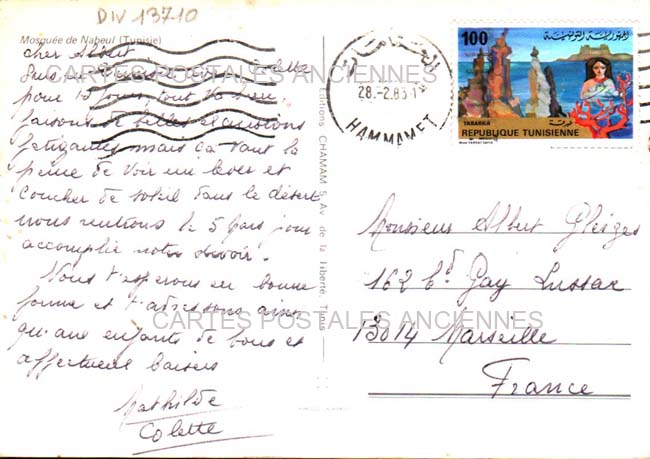 DIV 13710
Mosquée de Nabeul (Tunisie)
cher Albert
pour 15 jours tout va bien
faisons de belles excursions
fatigantes mais ça vaut la
peine de voir un lever et
coucher de soleil dans le désert
nous rentrons le 5 Mars jour
accomplir notre devoir.
Nous t'esperons en bonne
forme et t'adressons ainsi
qu'aux enfants de bons et
affectueux baisers
Mathilde
Colette
Editions CHAMAM 5, Av. de la liberté, Tunis
CARTES POSTALES ANCIENNES
CARTES POSTALES ANCIENNES
الحمامات
28.-2.83
HAMMAMET
100
الجمهورية التونسية
TABARKA
طبرقة
REPUBLIQUE TUNISIENNE
Monsieur Albert Gleizes
162 Bd Gay Lussac
13014 Marseille
France